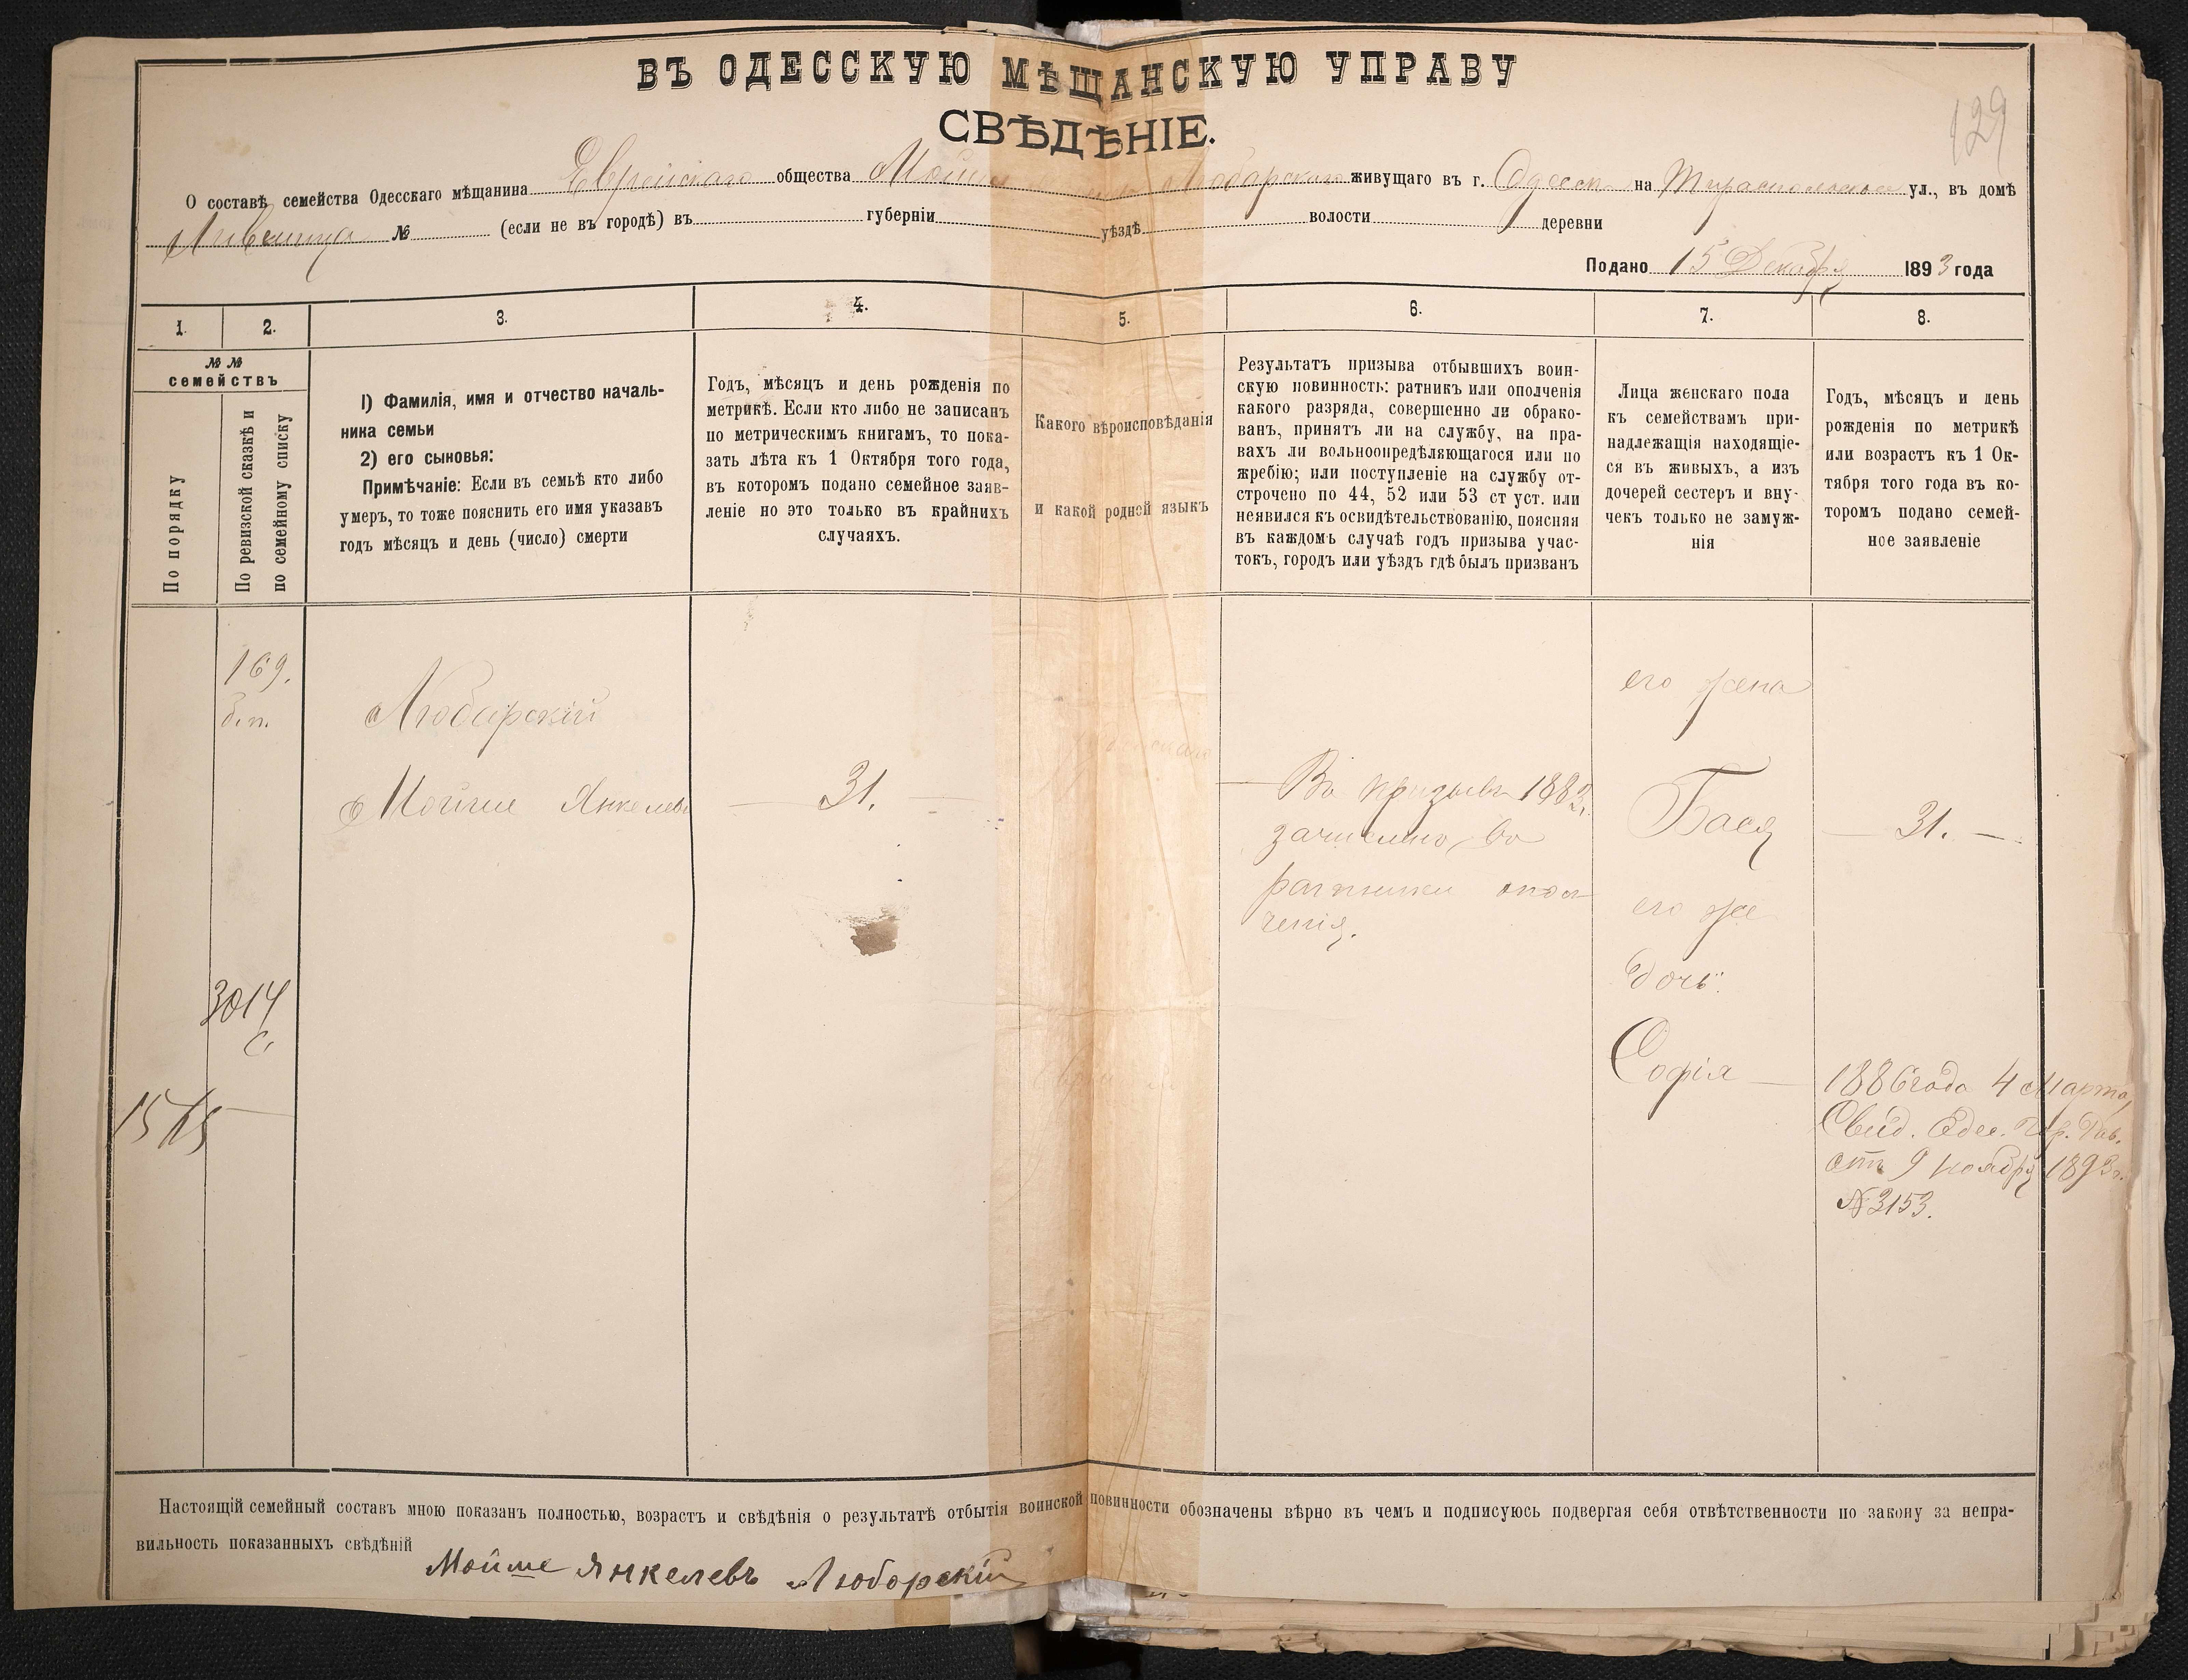 ВЪ ОДЕССКУЮ МѢЩАНСКУЮ УПРАВУ
СВѢДѢНІЕ.
129
О составѣ семейства Одесскаго мѣщанина Еврейскаго общества Мойши Любарскаго живущаго въ г. Одессѣ на Тираспольской ул., въ домѣ
Лившица № (если не въ городѣ) въ губерніи уѣздѣ волости деревни
Подано 15 Декабря 1893 года
1. 2. 3. 4. 5. 6. 7. 8.
№ №
семействъ
По порядку
По ревизской сказкѣ и
по семейному списку
1) Фамилія, имя и отчество началь-
ника семьи
2) его сыновья:
Примѣчаніе: Если въ семьѣ кто либо
умеръ, то тоже пояснить его имя указавъ
годъ мѣсяцъ и день (число) смерти
Годъ, мѣсяцъ и день рожденія по
метрикѣ. Если кто либо не записанъ
по метрическимъ книгамъ, то пока-
зать лѣта къ 1 Октября того года,
въ которомъ подано семейное заяв-
леніе но это только въ крайнихъ
случаяхъ.
Какого вѣроисповѣданія
и какой родной языкъ
Результатъ призыва отбывшихъ воин-
скую повинность: ратникъ или ополченія
какого разряда, совершенно ли обрако-
ванъ, принятъ ли на службу, на пра-
вахъ ли вольноопредѣляющагося или по
жребію; или поступленіе на службу от-
строчено по 44, 52 или 53 ст уст. или
неявился къ освидѣтельствованію, поясняя
въ каждомъ случаѣ годъ призыва учас-
токъ, городъ или уѣздъ гдѣ былъ призванъ
Лица женскаго пола
къ семействамъ при-
надлежащія находящіе-
ся въ живыхъ, а изъ
дочерей сестеръ и вну-
чекъ только не замуж-
нія
Годъ, мѣсяцъ и день
рожденія по метрикѣ
или возрастъ къ 1 Ок-
тября того года въ ко-
торомъ подано семей-
ное заявленіе
169.
б.п.
3014
с
1565
Любарскій
Мойше Янкелевъ
— 31. —
Въ призывъ 1883г.
зачисленъ въ
ратники опол-
ченія.
его жена
Бася
его же
дочь:
Софія —
— 31. —
1886 года 4 Марта,
Свид. Одес. Гор. Рав.
отъ 9 ноября 1893г.
№ 3153.
Настоящій семейный составъ мною показанъ полностью, возрастъ и свѣдѣнія о результатѣ отбытія воинской повинности обозначены вѣрно въ чемъ и подписуюсь подвергая себя отвѣтственности по закону за непра-
вильность показанныхъ свѣдѣній
Мойше Янкелевъ Люборскій